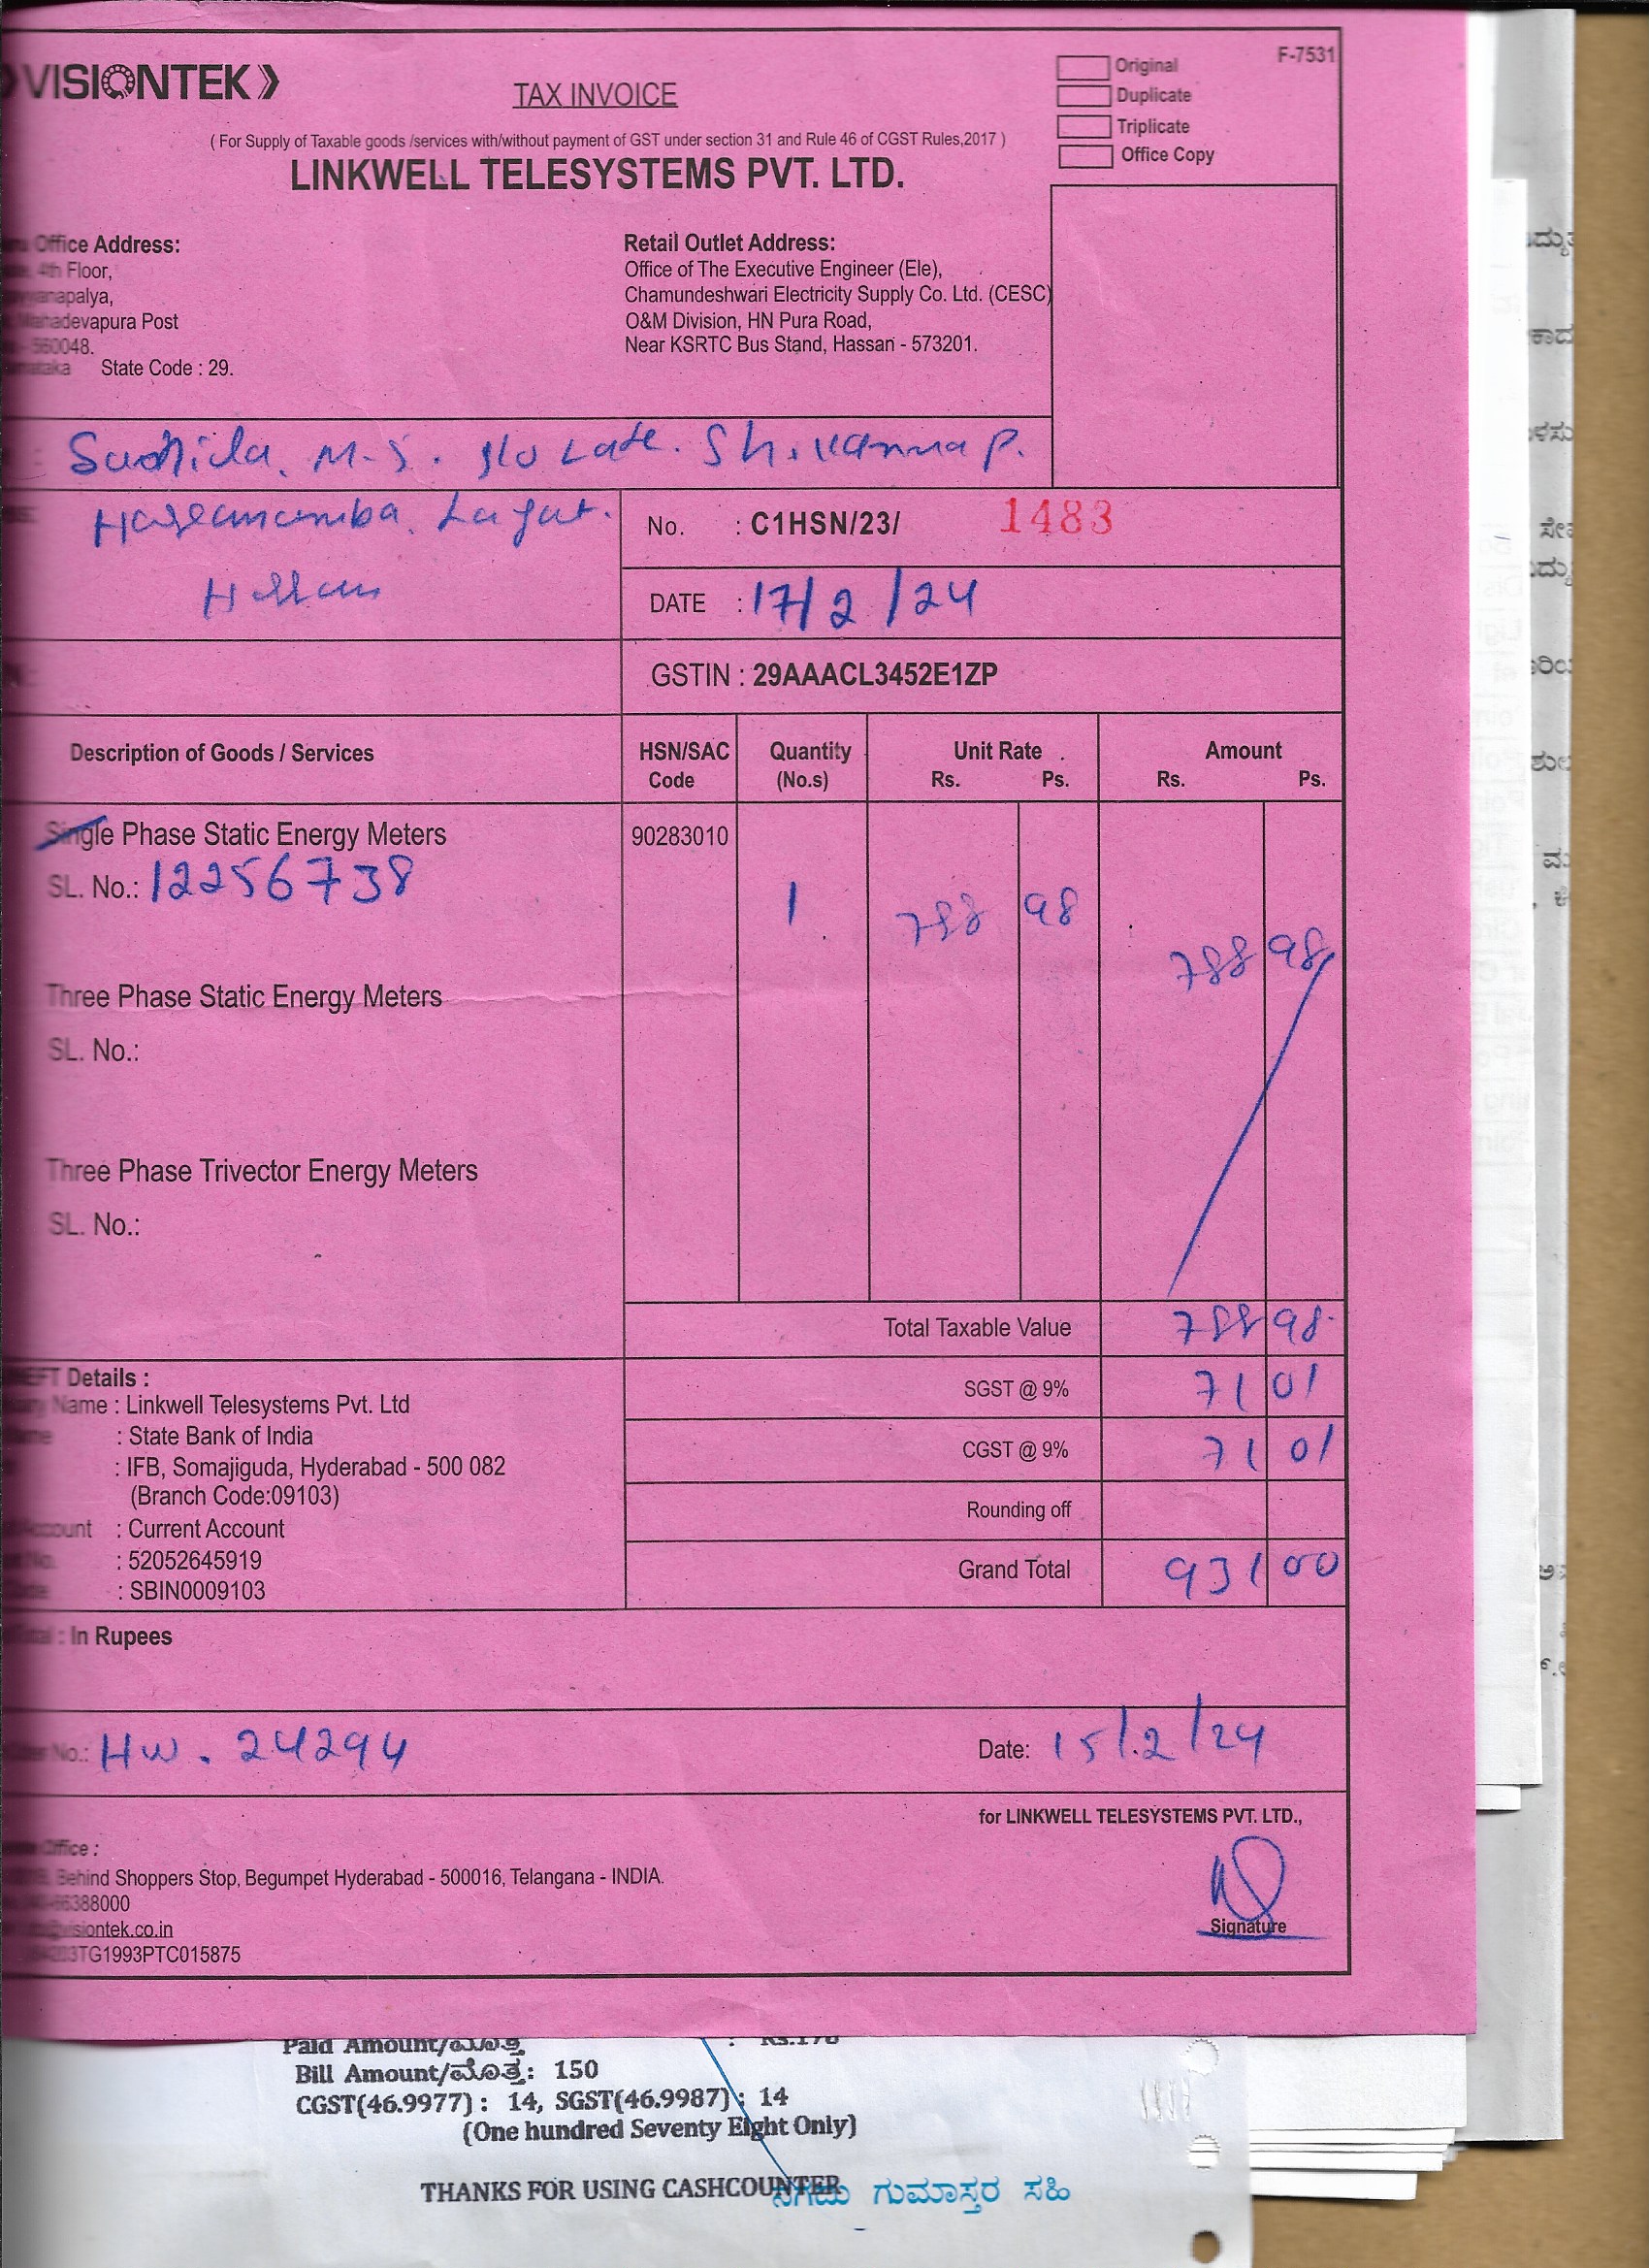 VISIONTEK
TAX INVOICE
F-7531
Original
Duplicate
Triplicate
Office Copy
( For Supply of Taxable goods /services with/without payment of GST under section 31 and Rule 46 of CGST Rules,2017 )
LINKWELL TELESYSTEMS PVT. LTD.
Office Address:
4th Floor,
Mahadevapura Post
- 560048.
State Code : 29.
Retail Outlet Address:
Office of The Executive Engineer (Ele),
Chamundeshwari Electricity Supply Co. Ltd. (CESC)
O&M Division, HN Pura Road,
Near KSRTC Bus Stand, Hassan - 573201.
M.S. Late. P.
No. : C1HSN/23/ 1483
DATE : 17/2/24
GSTIN : 29AAACL3452E1ZP
Description of Goods / Services HSN/SAC Code Quantity (No.s) Unit Rate Rs. Ps. Amount Rs. Ps.
Single Phase Static Energy Meters 90283010
SL. No.: 12256738 1 788 98 788 98
Three Phase Static Energy Meters
SL. No.:
Three Phase Trivector Energy Meters
SL. No.:
Total Taxable Value 788 98
SGST @ 9% 71 01
CGST @ 9% 71 01
Rounding off
Grand Total 931 00
Details :
Name : Linkwell Telesystems Pvt. Ltd
: State Bank of India
: IFB, Somajiguda, Hyderabad - 500 082
(Branch Code:09103)
: Current Account
: 52052645919
: SBIN0009103
: In Rupees
No.: HW. 24294 Date: 15/2/24
for LINKWELL TELESYSTEMS PVT. LTD.,
Office :
Behind Shoppers Stop, Begumpet Hyderabad - 500016, Telangana - INDIA.
66388000
visiontek.co.in
TG1993PTC015875
Signature
Paid Amount/ಮೊತ್ತ : Rs.178
Bill Amount/ಮೊತ್ತ: 150
CGST(46.9977) : 14, SGST(46.9987) : 14
(One hundred Seventy Eight Only)
THANKS FOR USING CASHCOUNTER
ನಗದು ಗುಮಾಸ್ತರ ಸಹಿ